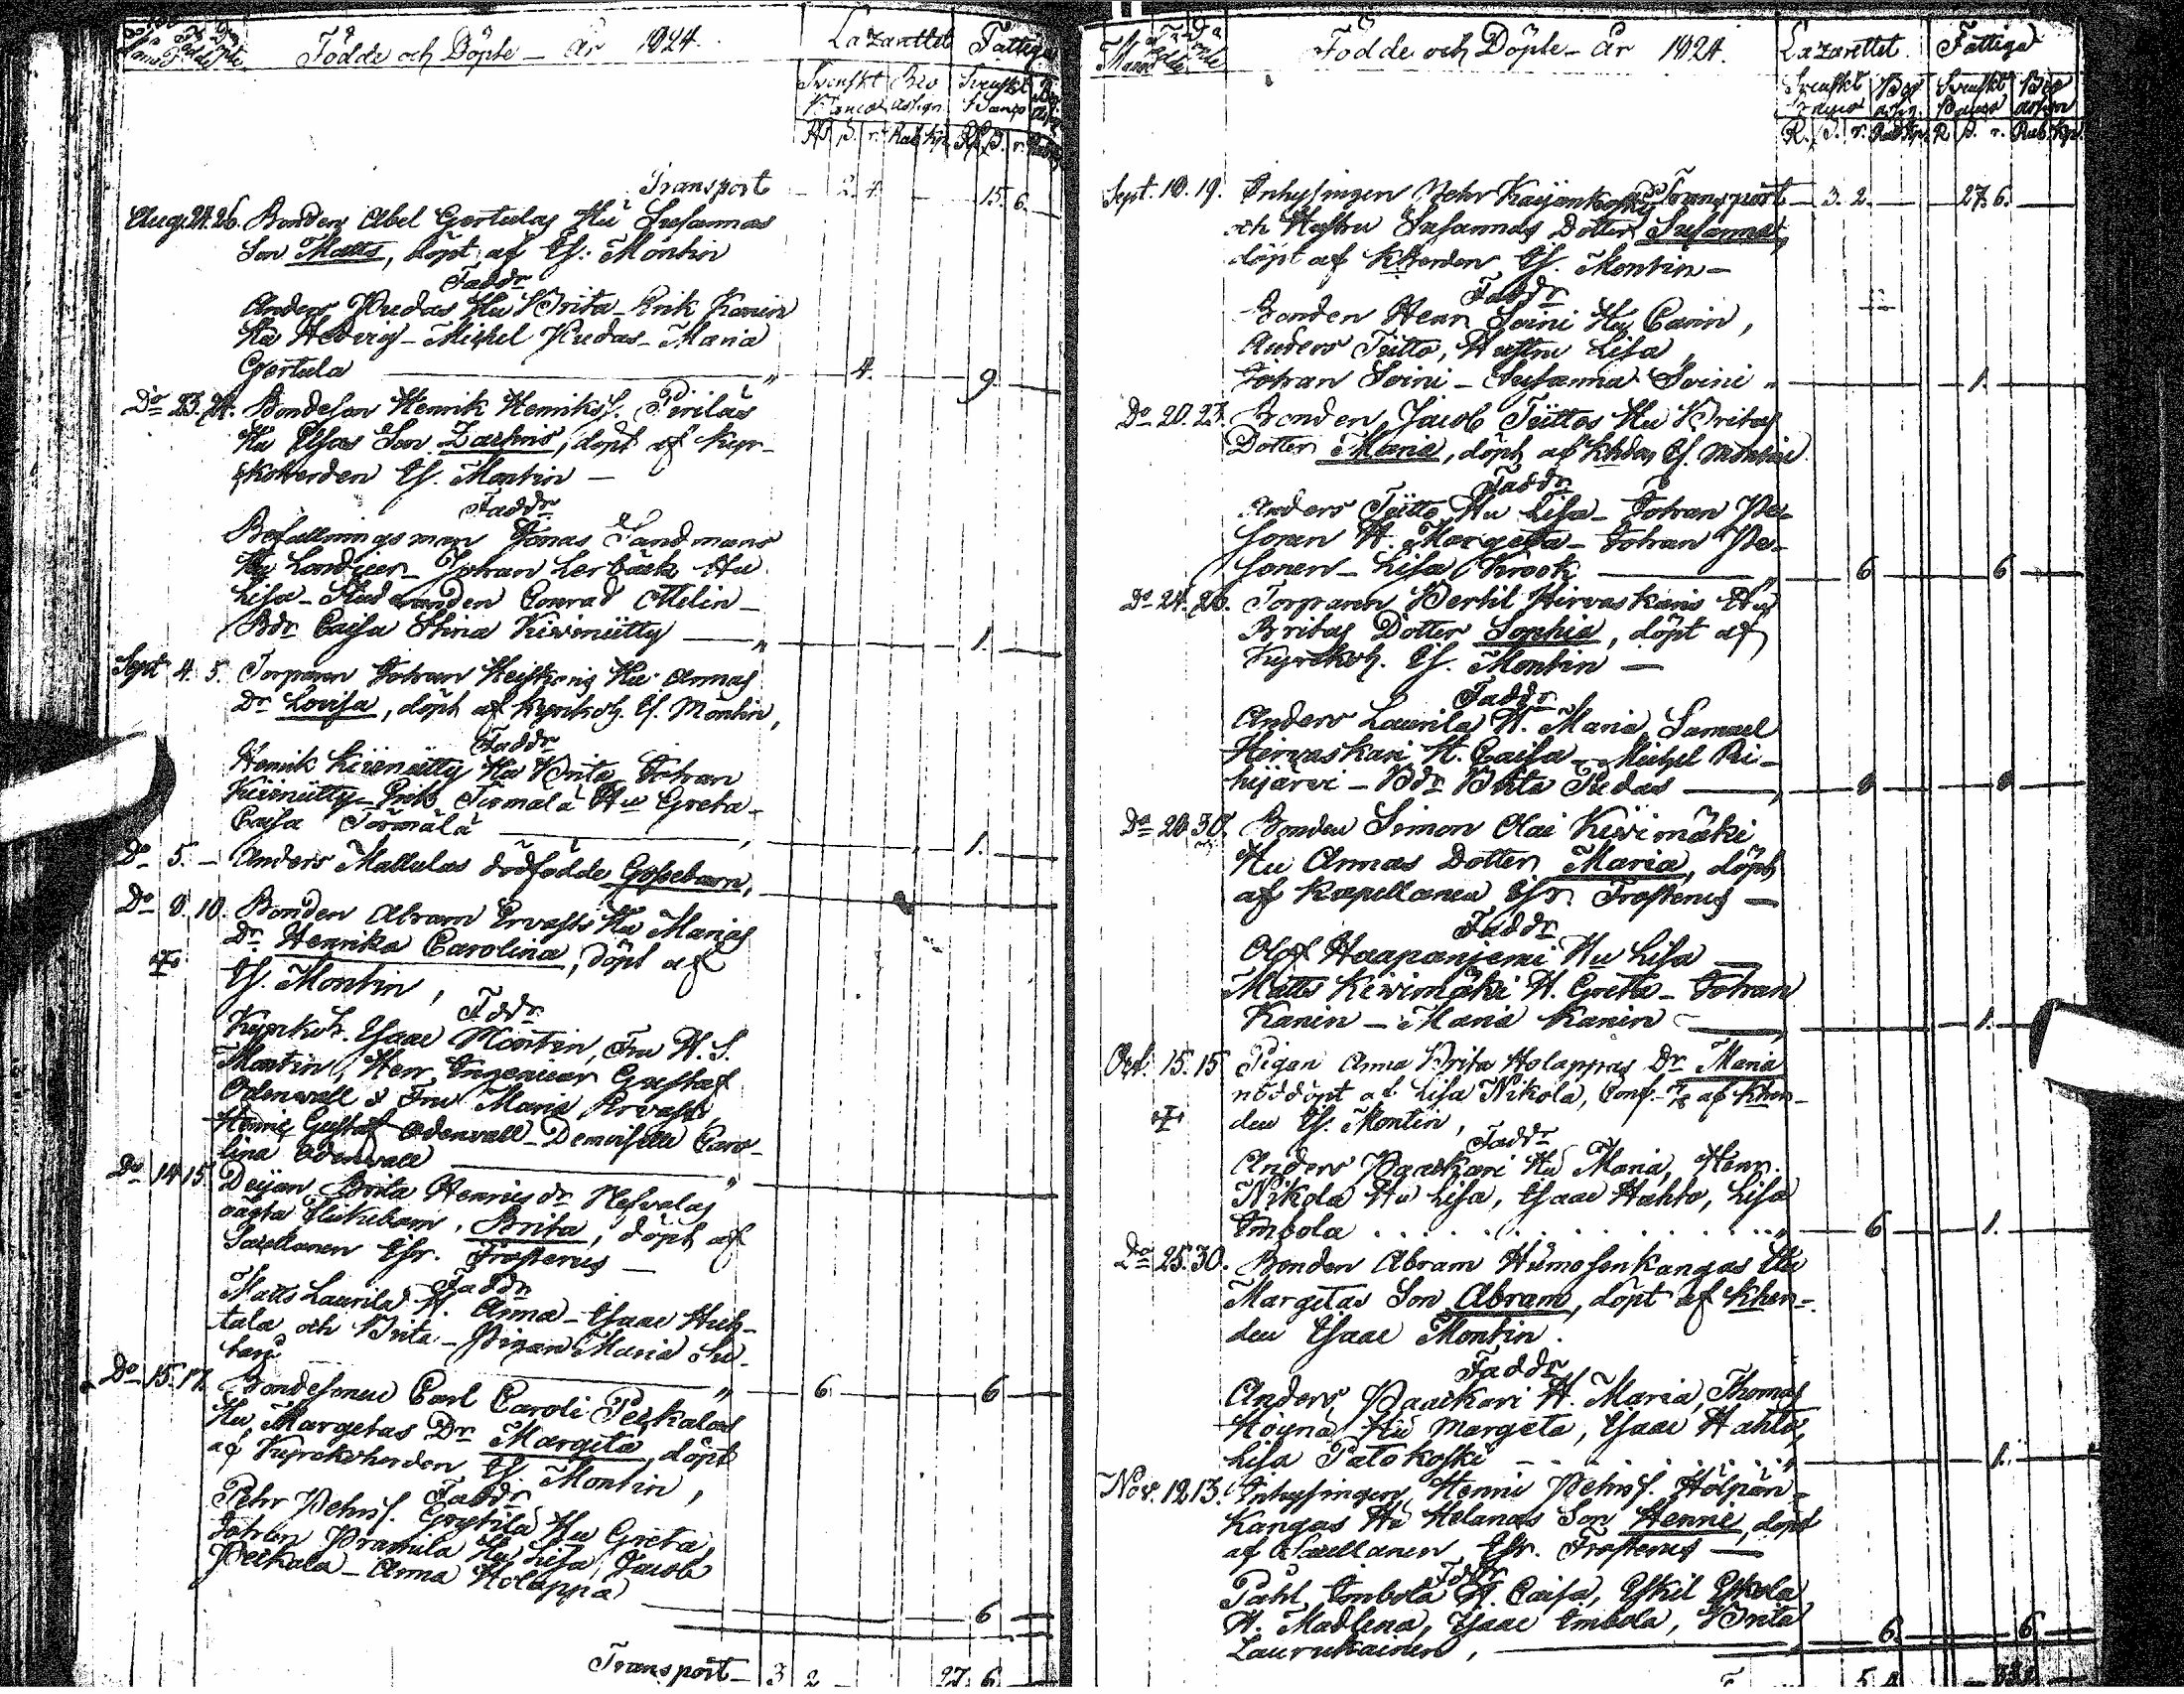 Födde och Döpte – År 1824.
Lazarettet Fattiga
Svenskt Bco Svenskt
R. Rub. Kp.
Transport 2. 4. 15. 6.
Aug. 24. 26. Bonden Abel Gertulas Hu Susannas
Son Matts, döpt af Es. Montin
Faddr
Anders Pudas Hu Brita – Erik Kanin
Hu Hedvig – Michel Pudas – Maria
Gertula 4. 9.
Do 23. 24. Bondeson Henrik Henrikss. Pirilas
Hu Elsas Son Zachris, döpt af Kyr-
koherden Es. Montin –
Faddr
Befallningsman Jonas Sandmans
Johan Lerbäck Hu
Lisa – Studeranden Conrad Melin –
Bdr Caisa Stina Kiviniitty 1.
Sept 4. 5. Torparen Johan Heiskaris Hu Annas
Dr Lovisa, döpt af Kyrkoh. Es. Montin,
Faddr
Henrik Kiviniitty Hu Brita Johan
Kiviniitty – Erik Törmälä Hu Greta –
Caisa Törmälä 1.
Do 5. – Anders Mattulas dödfödde Gossebarn,
Do 8. 10. Bonden Abram Ervasts Hu Marias
Dr Henrika Carolina, döpt af
Es. Montin,
Fddr
Kyrkoh. Esaac Montin, Fru H. S.
Montin, Herr Ingenieur Gustaf
Odenwall & Fru Maria Ervast,
Henric Gustaf Odenwall – Demoiselle Caro-
lina Odenwall
Do 14 15 Deijan Brita Henricsdr
oägta flickebarn, Brita, döpt af
Capellanen Esr. Frosterus –
Faddr
Matts Laurila H. Anna – Esaac Huh-
tala och Brita – Pigan Maria
6 6
Do 15. 17. Bondesonen Carl Caroli Peckalas
Hu Margetas Dr Margeta, döpt
af Kyrkoherden Es. Montin,
Faddr
Pehr Pehrss. Hu Greta,
Johan Pramila Hu Lisa, Jacob
Peckala – Anna Holappa
6
Transport – 3 2 27. 6
Födde och Döpte – År 1824.
Lazarettet Fattiga
Svenskt Bco Svenskt Bco
R. r. Rub. Kp. R. r. Rub. Kp.
Sept. 18. 19. Inhysingen Pehr Kaijankoskis Transport 3. 2. 27. 6.
och Hustru Susannas Dotter Susanna,
döpt af Kherden Es. Montin –
Faddr
Bonden Henr. Soini Hu Carin,
Anders Tiitto, Hustru Lisa,
Johan Soini – Susanna Soini 1.
Do 20. 23. Bonden Jacob Tiittos Hu Britas
Dotter Maria, döpt af Khden Es. Montin.
Faddr
Anders Tiitto Hu Lisa – Johan Pe-
sonen H. Margeta – Johan Pe-
sonen – Lisa Krook 6 6
Do 24. 26. Torparen Bertil Hirvaskaris Hu
Britas Dotter Sophia, döpt af
Kyrckoh. Es. Montin –
Faddr
Anders Laurila H. Maria, Samuel
Heirvaskari H. Caisa – Michel Ri-
hijärvi – Bdr Brita Pudas 8 8
Do 28 30. Bonden Simon Olai Kivimäki
Hu Annas Dotter Maria, döpt
af Kapellanen Esr. Frosterus –
Faddr
Olof Haapaniemi Hu Lisa –
Matts Kivimäki H. Greta – Johan
Kanin – Maria Kanin – 1.
Oct. 15. 15 Pigan Anna Brita Holappas Dr Maria
nöddöpt af Lisa Nikola, Conf. af Kher-
den Es. Montin,
Faddr
Anders Paackari Hu Maria, Henr.
Nikola Hu Lisa, Esaac Hahto, Lisa
Imbola . . . . . 6 1.
Do 25. 30. Bonden Abram Hiimosenkangas Hu
Margetas Son Abram, döpt af Kher-
den Esaac Montin.
Faddr
Anders Paackari H. Maria, Thomas
Hu Margeta, Esaac Hahto,
Lisa Patokoski 1.
Nov. 12 13. Inhysingen Henric Pehrss. Hölpän-
kangas Hu Helenas Son Henric, döpt
af Capellanen Esr. Frosterus –
Fddr
Påhl Imbola H. Caisa, Eskil Eskola
H. Madlena, Esaac Imbola, Brita
Laurukainen, 6. 6.